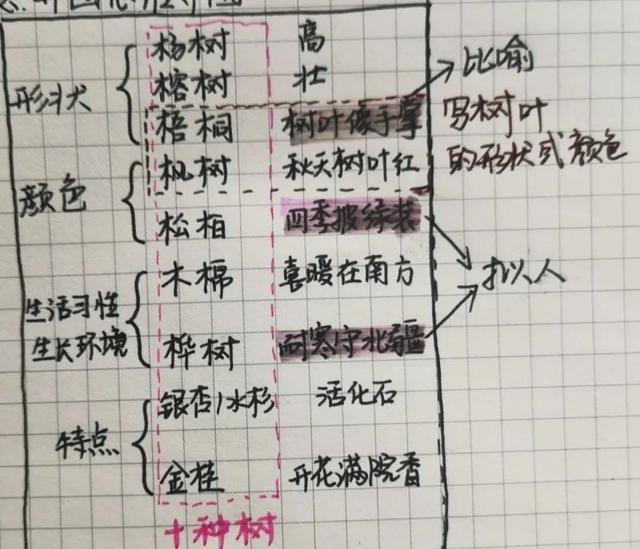 杨树 高
形状 榕树 壮
梧桐 树叶像手掌
枫树 秋天树叶红
颜色
松柏 四季披绿装
木棉 喜暖在南方
生活习性
生长环境
桦树 耐寒守北疆
银杏/水杉 活化石
特点
金桂 开花满院香
十种树
比喻
写树叶
的形状或颜色
拟人